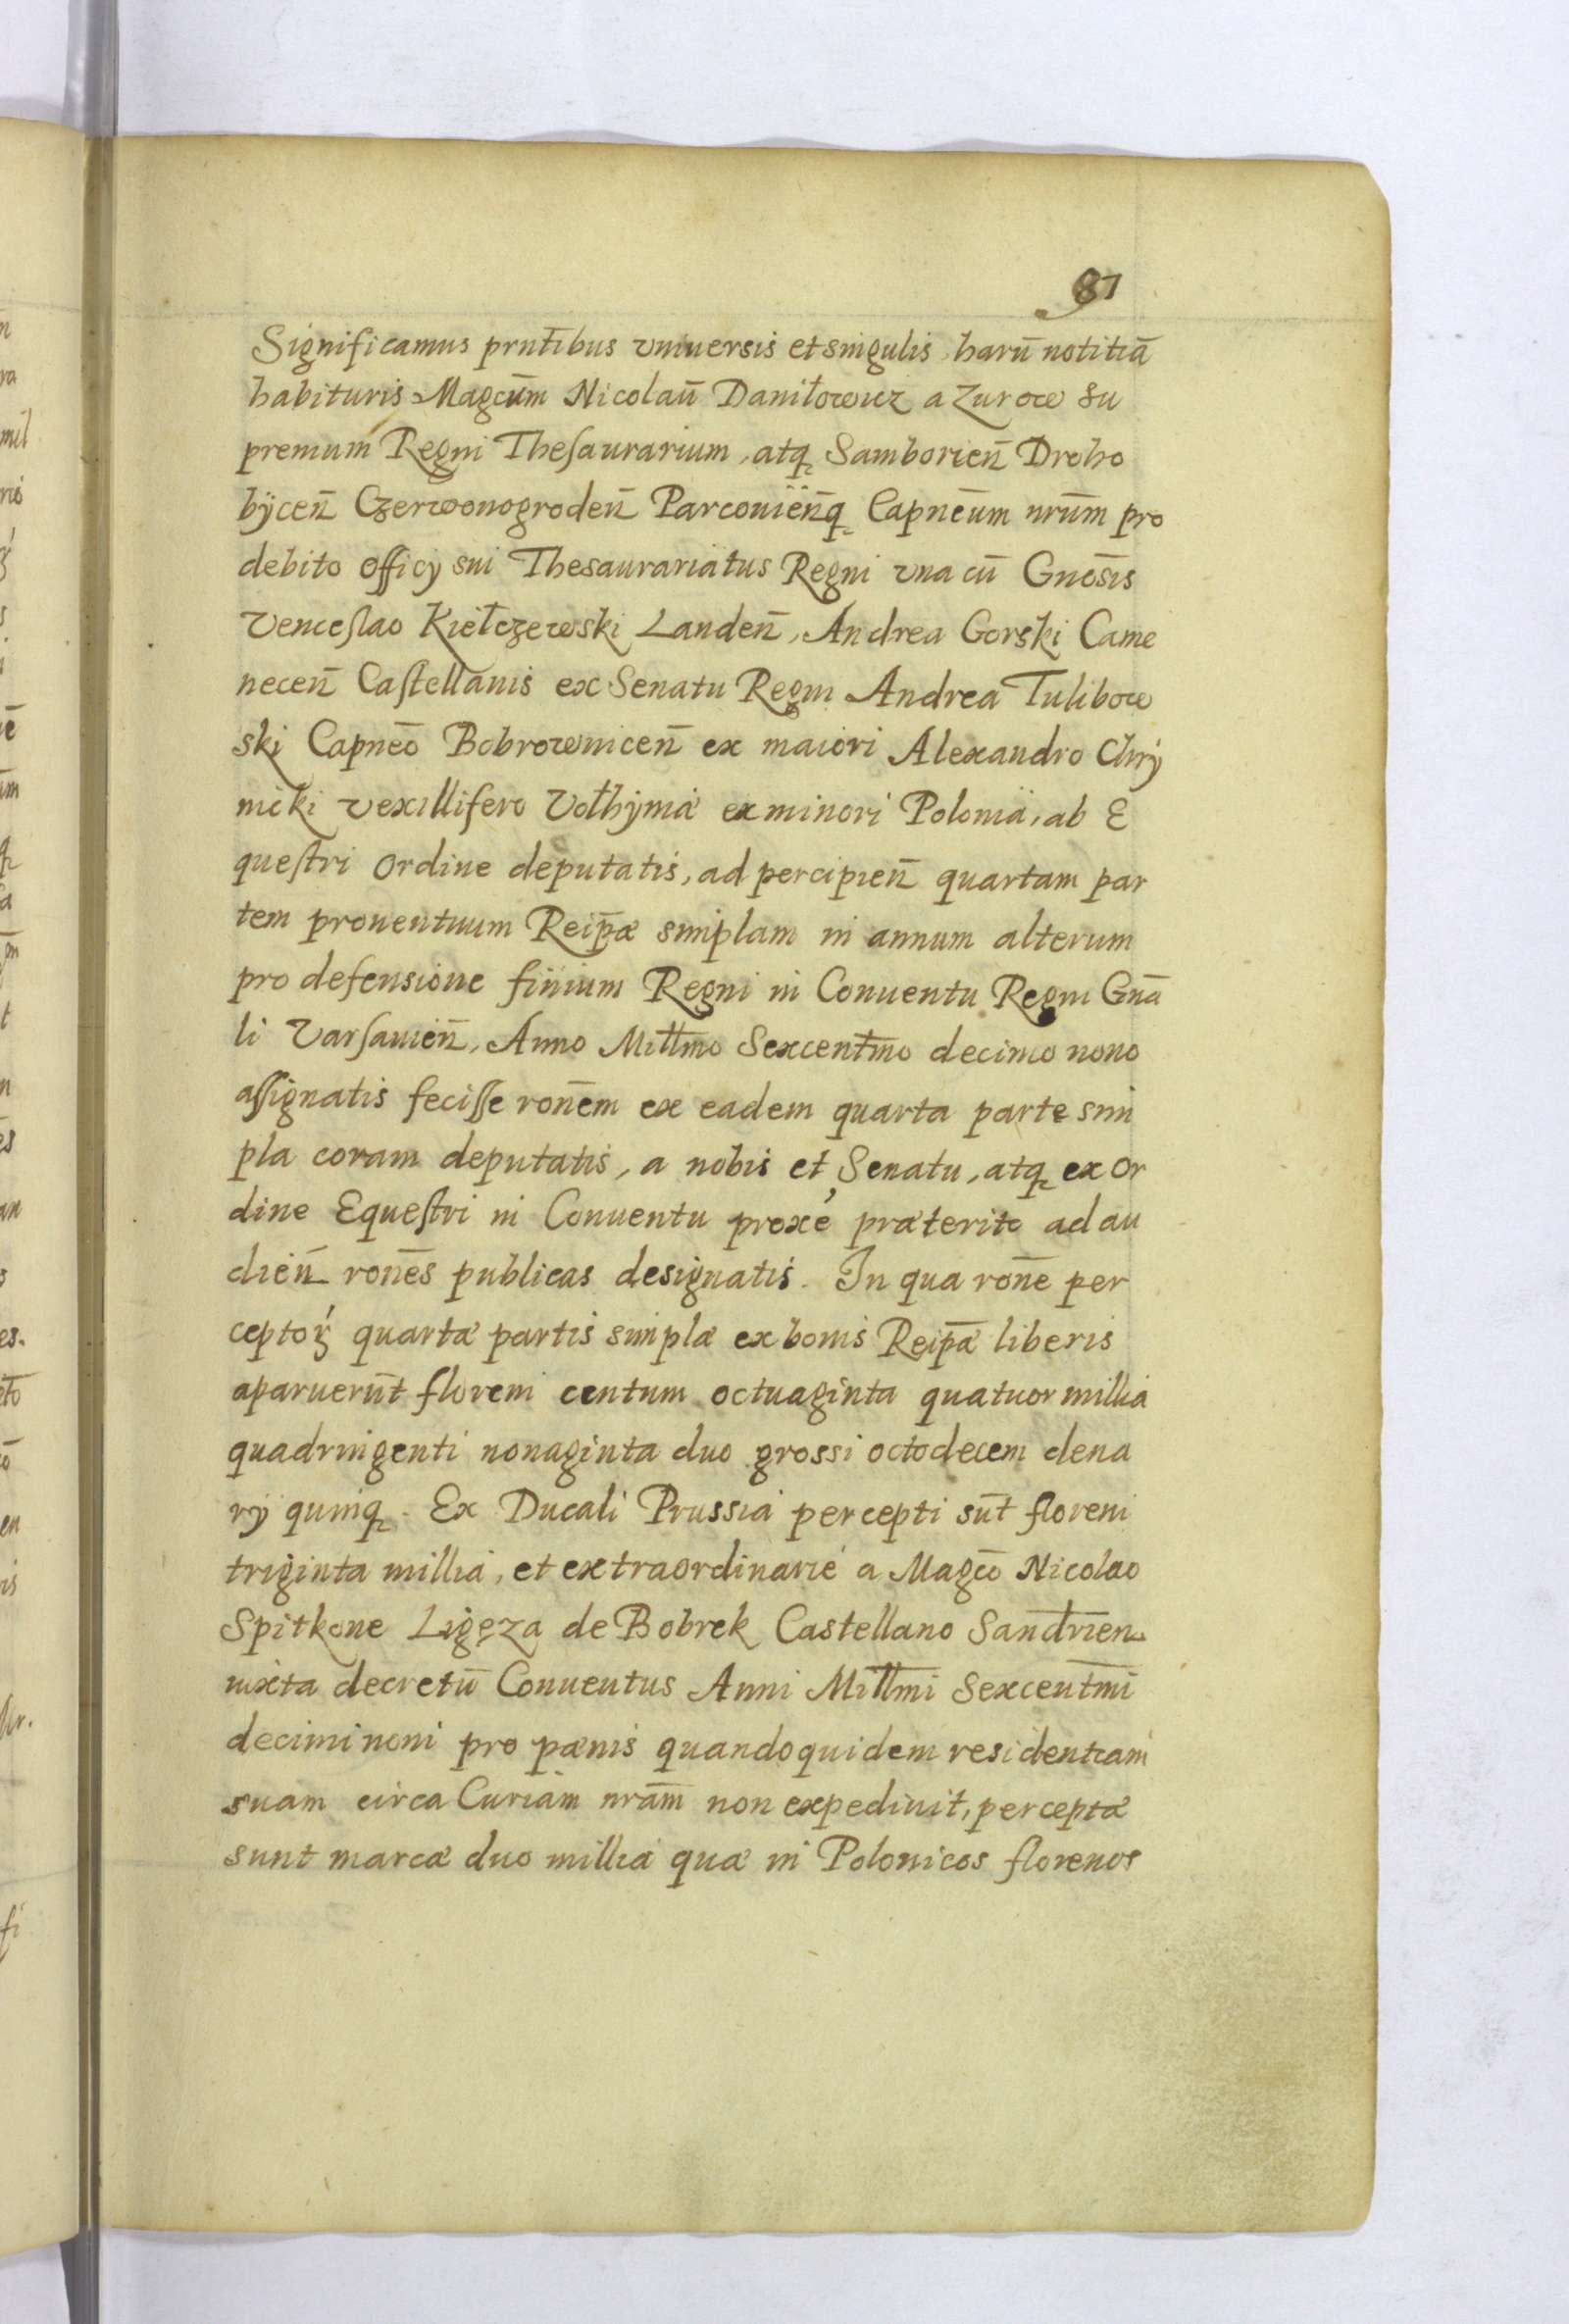 87
Significamus prntibus vniuersis et singulis harū notitiā
habituris Magcūm Nicolaū Daniłowicz a Zurow Su
premum Regni Thesaurarium, atq Samborien̄ Droho
bÿcen̄ Czerwonogroden̄ Parcouien̄q Capnēum nrūm pro
debito officÿ sui Thesaurariatus Regni vna cū Gnōsis
Venceslao Kiełczewski Landen̄, Andrea Gorski Came
necen̄ Castellanis ex Senatu Regni Andrea Tulibow
ski Capnēo Bobrownicen̄ ex maiori Alexandro Chrÿ
nicki vexillifero Vołhÿniæ ex minori Poloniæ, ab E
questri Ordine deputatis, ad percipien̄ quartam par
tem prouentuum Reip̄æ simplam in annum alterum
pro defensione finium Regni in Conuentu Regni Gnā
li Varsauien̄, Anno Millm̄o Sexcentm̄o decimo nono
assignatis fecisse ron̄em ex eadem quarta parte sim
pla coram deputatis, a nobis et Senatu, atq ex Or
dine Equestri in Conuentu proxe præterito ad au
dien̄ ron̄es publicas designatis. In qua ron̄e per
ceptoꝝ quartæ partis simplæ ex bonis Reip̄æ liberis
aparuerūt floreni centum octuaginta quatuor millia
quadringenti nonaginta duo grossi octodecem dena
rÿ quinq. Ex Ducali Prussia percepti sūt floreni
triginta millia, et extraordinarié a Magcō Nicolao
Spitkone Ligęza de Bobrek Castellano Sandrien̄
iuxta decretū Conuentus Anni Millm̄i Sexcentm̄i
decimi noni pro pænis quandoquidem residentiam
suam circa Curiam nrām non expediuit, perceptæ
sunt marcæ duo millia quæ in Polonicos florenos